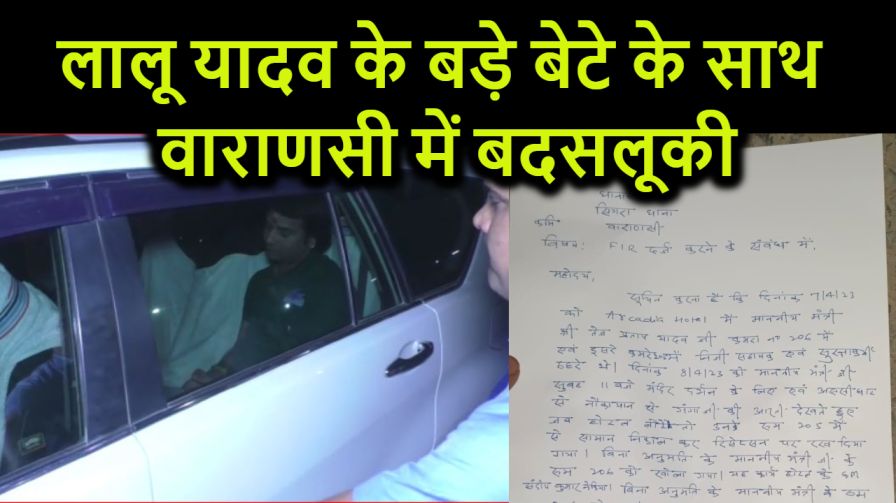 लालू यादव के बड़े बेटे के साथ
वाराणसी में बदसलूकी
थाना
सिगरा थाना
वाराणसी
विषय: FIR दर्ज करने के संबंध में,
महोदय,
सूचित करना है कि दिनांक 7/4/23
को Arcadia Hotel में माननीय मंत्री
श्री तेज प्रताप यादव जी कमरा नं 206 में
एवं दूसरे कमरे में निजी सहायक एवं सुरक्षाकर्मी
ठहरे थे। दिनांक 8/4/23 को माननीय मंत्री जी
सुबह 11 बजे मंदिर दर्शन के लिए एवं अस्सी घाट
से नौकायान से गंगा जी की आरती देखते हुए
जब होटल लौटे तो उनके रूम 205 में
से सामान निकाल कर रिसेप्सन पर रख दिया
गया। बिना अनुमति के माननीय मंत्री जी के
रूम 206 को खोला गया। यह कार्य होटल के GM
संदीप कुमार ने किया। बिना अनुमति के माननीय मंत्री के रूम